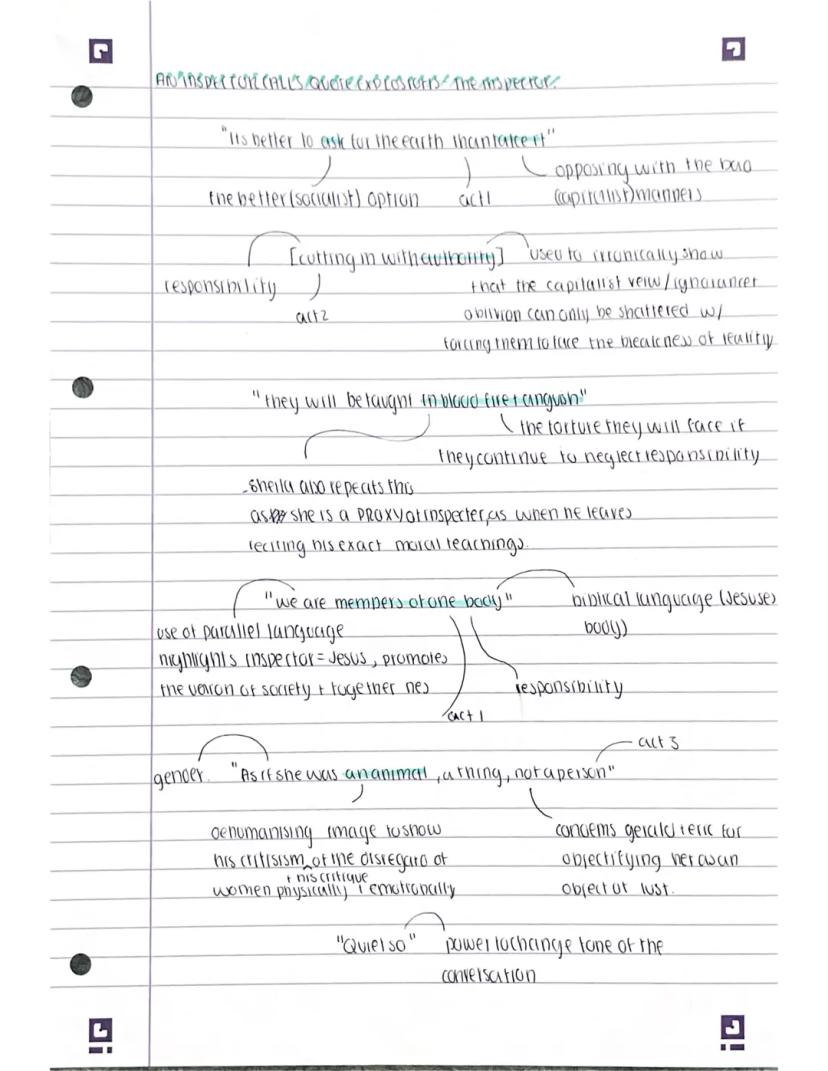 AN INSPECTOR CALLS QUOTE EXPLOSIONS - THE INSPECTOR:
"Its better to ask for the earth than take it"
opposing with the bad
the better (socialist) option act 1 (capitalist) manners
[cutting in with authority] used to ironically show
responsibility that the capitalist veiw/ignorance+
act 2 oblivion can only be shattered w/
forcing them to face the bleakness of reality
"they will be taught in blood fire + anguish"
the torture they will face if
they continue to neglect responsibility
-sheila also repeats this
as she is a PROXY of inspecter, as when he leaves
reciting his exact moral teachings.
"we are members of one body" biblical language (Jesuses
use of parallel language body)
highlights inspector = Jesus, promotes
the of society + together nes responsibility
act 1
act 3
gender. "As if she was an animal, a thing, not a person"
dehumanising image to show condems gerald + eric for
his critisism of the disregard of objectifying her as an
+ his critique
women physically + emotionally object of lust.
"Quiet so" power to change tone of the
conversation